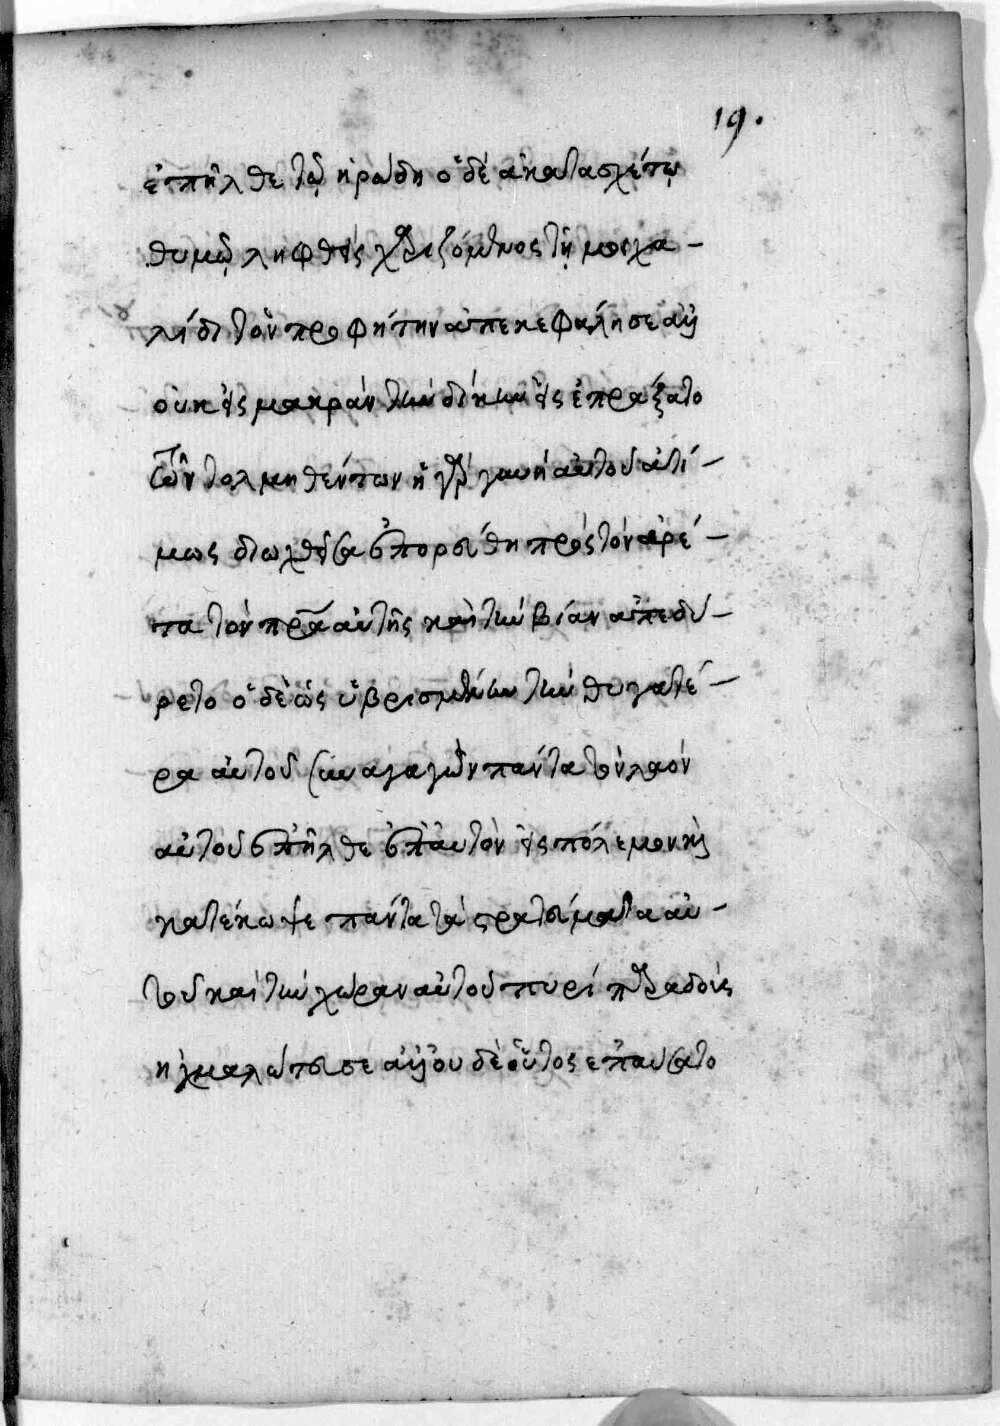 19.
ἐπῆλθε τῷ ἡρώδη ὁ δέ ἀκατασχέτῳ
θυμῷ ληφθεὶς χαριζόμενος τῇ μοιχα-
λίδι τὸν προφήτην ἀπεκεφάλησε αλλ
οὐκ εἰς μακράν τὴν δίκην εἰσεπράξατο
τῶν τολμηθέντων ἡ γὰρ γυνή αὐτοῦ ἀτί-
μως διωχθεῖσα ἐπορεύθη πρός τὸν ἀρέ-
τα τὸν πρα αὐτῆς καὶ τὴν βίαν ἀπεδύ-
ρετο ὁ δὲ ὡς ὑβρισμένην τὴν θυγατέ-
ρα αὐτοῦ συναγαγὼν πάντα τὸν λαόν
αὐτοῦ ἐπῆλθε ἐπ αὐτὸν εἰς πόλεμον καὶ
κατέκωψε πάντα τὰ στρατεύματα αὐ-
τοῦ καί τὴν χώραν αὐτοῦ πυρί παραδοὺς
ἠχμαλώτευσε ἀλλ οὐδὲ οὕτος ἐπαύσατο